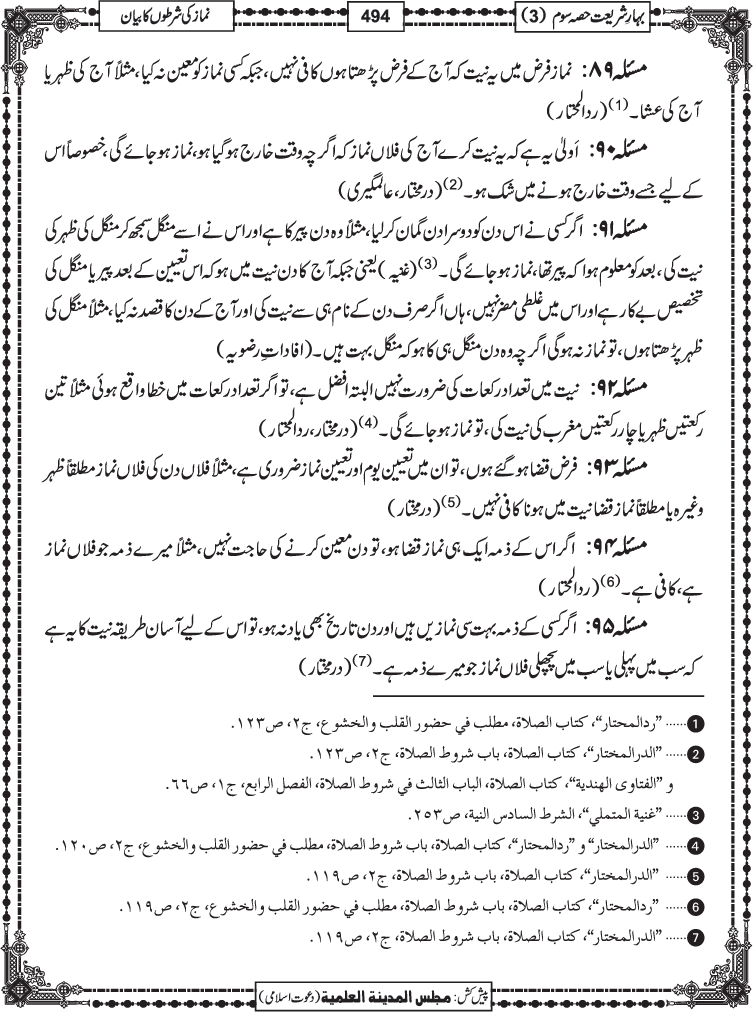 بہارِ شریعت حصہ سوم (3)
494
نماز کی شرطوں کا بیان
مسئلہ ۸۹: نماز فرض میں یہ نیت کہ آج کے فرض پڑھتا ہوں کافی نہیں، جبکہ کسی نماز کو معین نہ کیا، مثلاً آج کی ظہر یا
آج کی عشا۔(1) (ردالمحتار)
مسئلہ ۹۰: اَولیٰ یہ ہے کہ یہ نیت کرے آج کی فلاں نماز کہ اگرچہ وقت خارج ہو گیا ہو، نماز ہو جائے گی، خصوصاً اس
کے لیے جسے وقت خارج ہونے میں شک ہو۔(2) (درمختار، عالمگیری)
مسئلہ ۹۱: اگر کسی نے اس دن کو دوسرا دن گمان کر لیا، مثلاً وہ دن پیر کا ہے اور اس نے اسے منگل سمجھ کر منگل کی ظہر کی
نیت کی، بعد کو معلوم ہوا کہ پیر تھا، نماز ہو جائے گی۔(3) (غنیہ) یعنی جبکہ آج کا دن نیت میں ہو کہ اس تعیین کے بعد پیر یا منگل کی
تخصیص بے کار ہے اور اس میں غلطی مضر نہیں، ہاں اگر صرف دن کے نام ہی سے نیت کی اور آج کے دن کا قصد نہ کیا، مثلاً منگل کی
ظہر پڑھتا ہوں، تو نماز نہ ہوگی اگرچہ وہ دن منگل ہی کا ہو کہ منگل بہت ہیں۔ (افادات رضویہ)
مسئلہ ۹۲: نیت میں تعداد رکعات کی ضرورت نہیں البتہ افضل ہے، تو اگر تعداد رکعات میں خطا واقع ہوئی مثلاً تین
رکعتیں ظہر یا چار رکعتیں مغرب کی نیت کی، تو نماز ہو جائے گی۔(4) (درمختار، ردالمحتار)
مسئلہ ۹۳: فرض قضا ہو گئے ہوں، تو ان میں تعیین یوم اور تعیین نماز ضروری ہے، مثلاً فلاں دن کی فلاں نماز مطلقاً ظہر
وغیرہ یا مطلقاً نماز قضا نیت میں ہونا کافی نہیں۔(5) (درمختار)
مسئلہ ۹۴: اگر اس کے ذمہ ایک ہی نماز قضا ہو، تو دن معین کرنے کی حاجت نہیں، مثلاً میرے ذمہ جو فلاں نماز
ہے، کافی ہے۔(6) (ردالمحتار)
مسئلہ ۹۵: اگر کسی کے ذمہ بہت سی نمازیں ہیں اور دن تاریخ بھی یاد نہ ہو، تو اس کے لیے آسان طریقہ نیت کا یہ ہے
کہ سب میں پہلی یا سب میں پچھلی فلاں نماز جو میرے ذمہ ہے۔(7) (درمختار)
1 ...... "ردالمحتار"، كتاب الصلاة، مطلب في حضور القلب والخشوع، ج٢، ص١٢٣.
2 ...... "الدرالمختار"، كتاب الصلاة، باب شروط الصلاة، ج٢، ص١٢٣.
و "الفتاوى الهندية"، كتاب الصلاة، الباب الثالث في شروط الصلاة، الفصل الرابع، ج١، ص٦٦.
3 ...... "غنية المتملي"، الشرط السادس النية، ص٢٥٣.
4 ...... "الدرالمختار" و "ردالمحتار"، كتاب الصلاة، باب شروط الصلاة، مطلب في حضور القلب والخشوع، ج٢، ص١٢٠.
5 ...... "الدرالمختار"، كتاب الصلاة، باب شروط الصلاة، ج٢، ص١١٩.
6 ...... "ردالمحتار"، كتاب الصلاة، باب شروط الصلاة، مطلب في حضور القلب والخشوع، ج٢، ص١١٩.
7 ...... "الدرالمختار"، كتاب الصلاة، باب شروط الصلاة، ج٢، ص١١٩.
پیش کش: مجلس المدينة العلمية (دعوت اسلامی)